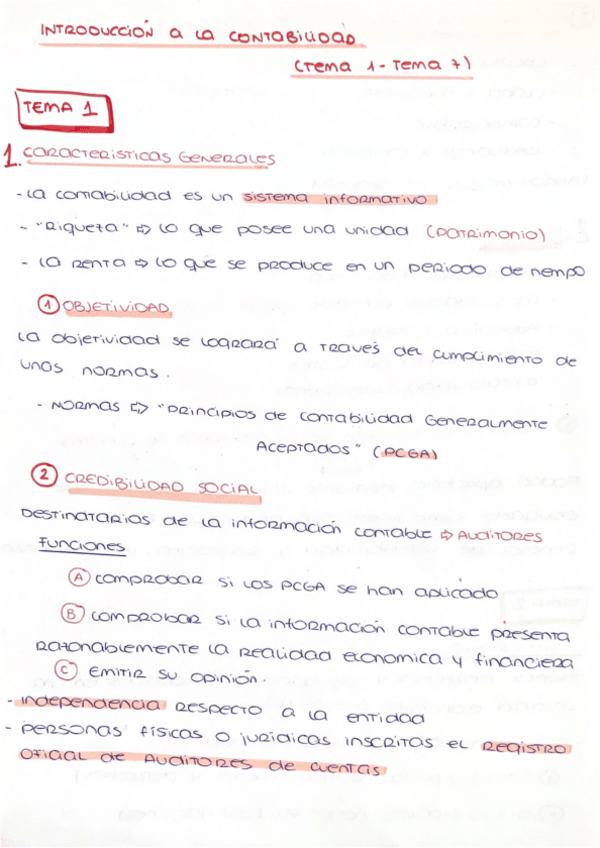 INTRODUCCIÓN a LA CONTABILIDAD
(TEMA 1 - TEMA 7)
TEMA 1
1. CARACTERISTICAS GENERALES
- La contabilidad es un sistema informativo
- "Riqueza" ⇨ Lo que posee una unidad (PATRIMONIO)
- La renta ⇨ Lo que se produce en un periodo de tiempo
① OBJETIVIDAD
La objetividad se logrará a través del cumplimiento de
unas normas.
- NORMAS ⇨ "Principios de contabilidad Generalmente
Aceptados" (PCGA)
② CREDIBILIDAD SOCIAL
Destinatarios de la información contable ⇨ Auditores
Funciones
Ⓐ comprobar si los PCGA se han aplicado
Ⓑ comprobar si la información contable presenta
razonablemente la realidad economica y financiera
Ⓒ Emitir su opinión.
- independencia respecto a la entidad
- personas físicas o jurídicas inscritas el Registro
Oficial de Auditores de cuentas